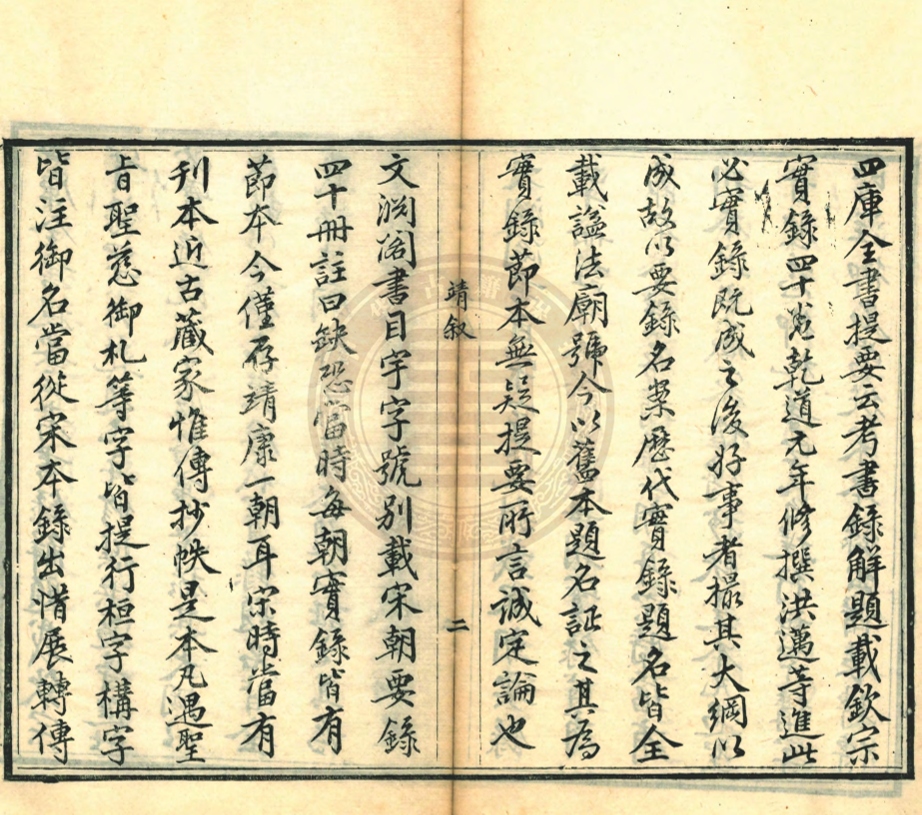 四庫全書提要云考書錄解題載欽宗
實錄四十卷乾道元年修撰洪邁等進此
必實錄既成之後好事者撮其大綱以
成故以要錄名案歷代實錄題名皆全
載謚法廟號今以舊本題名証之其為
實錄節本無疑提要所言誠定論也
靖叙
二
文淵閣書目宇字號別載宋朝要錄
四十冊註曰缺恐當時每朝實錄皆有
節本今僅存靖康一朝耳宋時當有
刊本近古藏家惟傳抄帙是本凡遇聖
旨聖慈御札等字皆提行桓字構字
皆注御名當從宋本錄出惜展轉傳